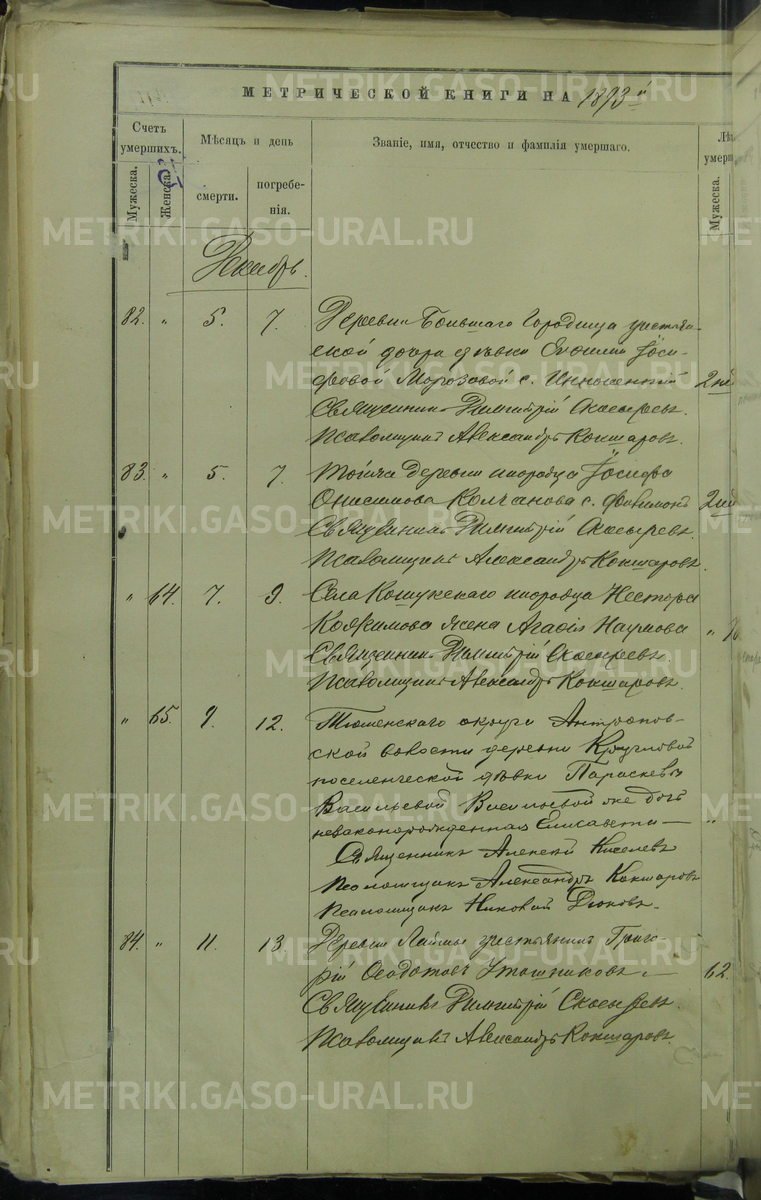 МЕТРИЧЕСКОЙ КНИГИ НА 1893й
Счетъ умершихъ.
Мѣсяцъ и день
Званіе, имя, отчество и фамилія умершаго.
Лѣ
умерш
Мужеска.
Женска.
смерти.
погребе-
нія.
Мужеска.
Декабрь.
82. " 5. 7. Деревни Большаго Городища крестьян-
ской дочери дѣвки Евфиміи Іоси-
фовой Морозовой с. Иннокентій 2 не
Священникъ Димитрій Скосыревъ.
Псаломщикъ Александръ Кокшаровъ.
83. " 5. 7. Той же деревни инородца Іосифа
Онисимова Колчанова с. Филимонъ 2 не
Священникъ Димитрій Скосыревъ.
Псаломщикъ Александръ Кокшаровъ.
" 64. 7. 9. Села Кошукскаго инородца Нестора
жена Агафія Наумова "
Священникъ Димитрій Скосыревъ.
Псаломщикъ Александръ Кокшаровъ.
" 65. 9. 12. Тюменскаго округа Антропов-
ской волости деревни Кругловой
поселенческой дѣвки Параскевы
Васильевой Васильевой же дочь
незаконорожденная Елисавета — "
Священникъ Алексѣй Киселевъ
Псаломщикъ Александръ Кокшаровъ
Псаломщикъ Николай
84. " 11. 13 Деревни Лаймы крестьянинъ Григо
рій Ѳеодотовъ — 62.
Священникъ Димитрій Скосыревъ.
Псаломщикъ Александръ Кокшаровъ.
METRIKI.GASO-URAL.RU